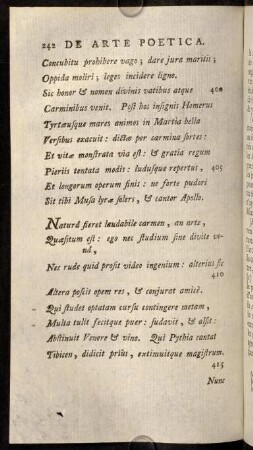 242 DE ARTE POETICA.
Concubitu prohibere vago; dare jura maritis;
Oppida moliri; leges incidere ligno.
Sic honor & nomen divinis vatibus atque 400
Carminibus venit. Post hos insignis Homerus
Tyrtæusque mares animos in Martia bella
Versibus exacuit: dictæ per carmina sortes:
Et vitæ monstrata via est: & gratia regum
Pieriis tentata modis: ludusque repertus, 405
Et longorum operum finis: ne forte pudori
Sit tibi Musa lyræ solers, & cantor Apollo.
Naturâ fieret laudabile carmen, an arte,
Quæsitum est: ego nec studium sine divite ve-
nâ,
Nec rude quid prosit video ingenium: alterius sic
410
Altera poscit opem res, & conjurat amicè.
Qui studet optatam cursu contingere metam,
Multa tulit fecitque puer: sudavit, & alsit:
Abstinuit Venere & vino. Qui Pythia cantat
Tibicen, didicit priùs, extimuitque magistrum.
415
Nunc